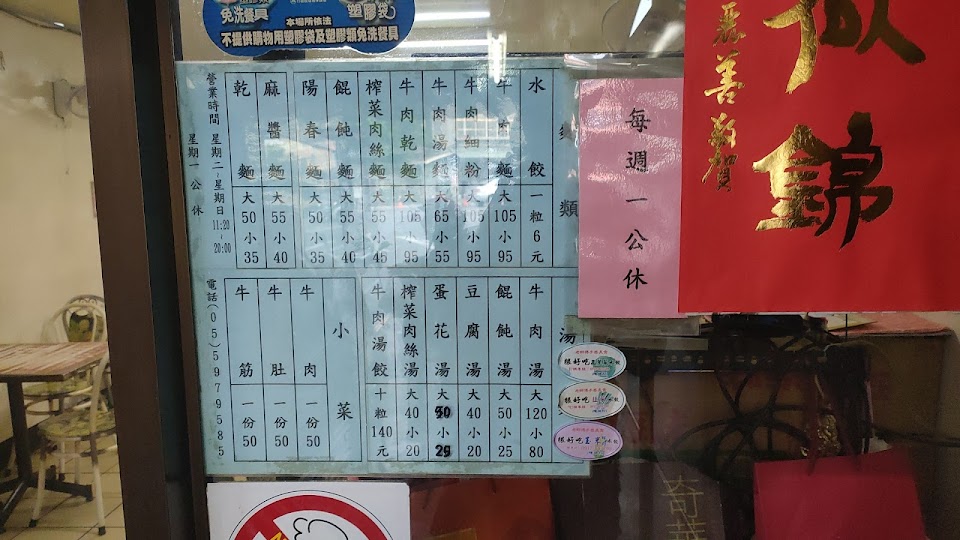 免洗餐具
塑膠袋
本場所依法
不提供購物用塑膠袋及塑膠類免洗餐具
麵類
水餃 一粒6元
牛肉麵 大105 小95
牛肉細粉 大105 小95
牛肉湯麵 大65 小55
牛肉乾麵 大105 小95
榨菜肉絲麵 大55 小45
餛飩麵 大55 小40
陽春麵 大50 小35
麻醬麵 大55 小40
乾麵 大50 小35
營業時間 星期二~星期日 11:20~20:00
星期一公休
湯
牛肉湯 大120 小80
餛飩湯 大50 小25
豆腐湯 大40 小20
蛋花湯 大 小
榨菜肉絲湯 大40 小20
牛肉湯餃 十粒140元
小菜
牛肉 一份50
牛肚 一份50
牛筋 一份50
電話(05)5979585
每週一公休
錦
善
賀
很好吃
很好吃
很好吃
奇